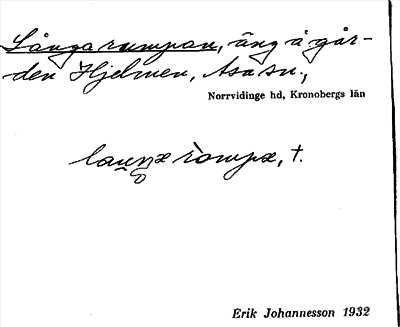 Långarumpan, äng å går-
den Hjelmen, Asa sn.,
Norrvidinge hd, Kronobergs län
rompa, t.
Erik Johannesson 1932